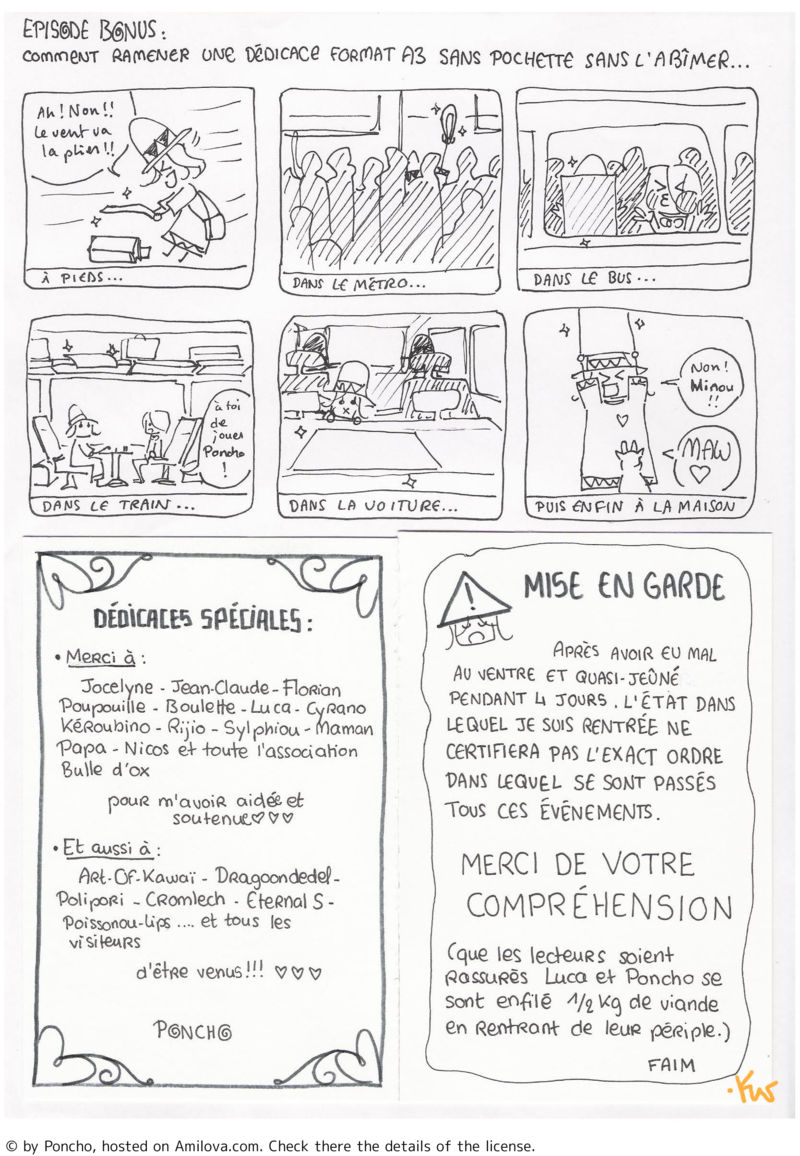 EPISODE BONUS :
COMMENT RAMENER UNE DÉDICACE FORMAT A3 SANS POCHETTE SANS L'ABÎMER...
Ah ! Non !!
le vent va
la plier !!
À PIEDS...
DANS LE MÉTRO...
DANS LE BUS...
à toi
de
jouer
Poncho
!
DANS LE TRAIN...
DANS LA VOITURE...
Non !
Minou
!!
MAW
♡
PUIS ENFIN À LA MAISON
DÉDICACES SPÉCIALES :
• Merci à :
Jocelyne - Jean-Claude - Florian
Poupouille - Boulette - Luca - Cyrano
Kéroubino - Rijio - Sylphiou - Maman
Papa - Nicos et toute l'association
Bulle d'ox
pour m'avoir aidée et
soutenue ♡ ♡ ♡
• Et aussi à :
Art-Of-Kawaï - Dragoondedel -
Polipori - Cromlech - Eternal S -
Poissonou-lips .... et tous les
visiteurs
d'être venus !!! ♡ ♡ ♡
PONCHO
!
MISE EN GARDE
APRÈS AVOIR EU MAL
AU VENTRE ET QUASI-JEÛNÉ
PENDANT 4 JOURS. L'ÉTAT DANS
LEQUEL JE SUIS RENTRÉE NE
CERTIFIERA PAS L'EXACT ORDRE
DANS LEQUEL SE SONT PASSÉS
TOUS CES ÉVÉNEMENTS.
MERCI DE VOTRE
COMPRÉHENSION
(que les lecteurs soient
rassurés Luca et Poncho se
sont enfilé 1/2 kg de viande
en rentrant de leur périple.)
FAIM
© by Poncho, hosted on Amilova.com. Check there the details of the license.